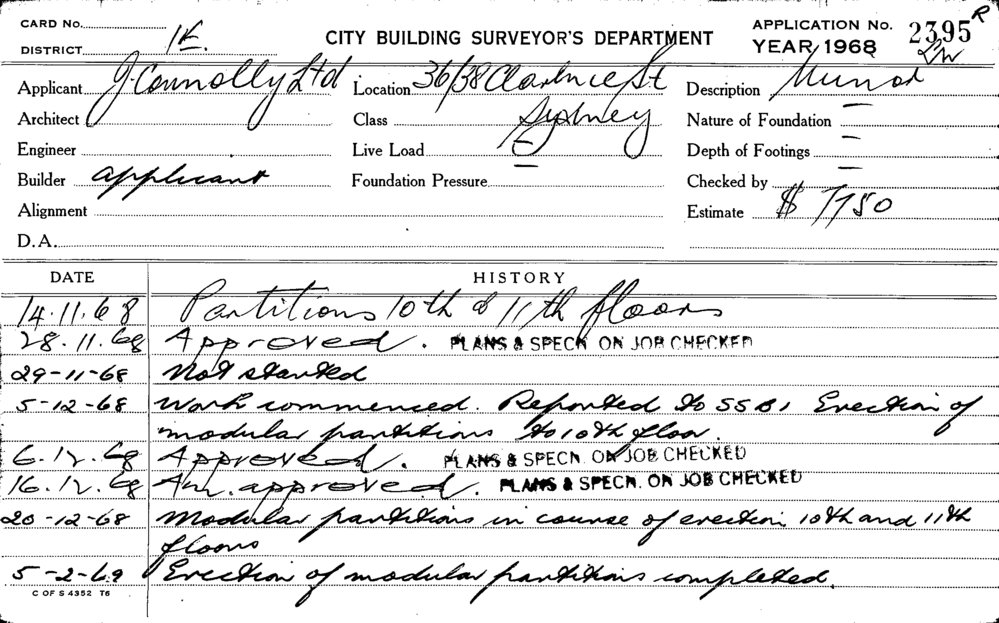 CARD No.
DISTRICT 1K.
CITY BUILDING SURVEYOR'S DEPARTMENT
APPLICATION No. 2395 R
YEAR 1968
Applicant J Connolly Ltd
Location 36/38 Clarence St
Description Minor
Architect
Class Sydney
Nature of Foundation —
Engineer
Live Load —
Depth of Footings —
Builder applicant
Foundation Pressure —
Checked by —
Alignment
Estimate $ 7750
D.A.
DATE HISTORY
14.11.68 Partitions 10th & 11th floors
28.11.68 Approved. PLANS & SPECN. ON JOB CHECKED
29-11-68 Not started
5-12-68 Work commenced. Reported to SSBI Erection of
modular partitions to 10th floor.
6.12.68 Approved. PLANS & SPECN. ON JOB CHECKED
16.12.68 Am. approved. PLANS & SPECN. ON JOB CHECKED
20-12-68 Modular partitions in course of erection 10th and 11th
floors
5-2-69 Erection of modular partitions completed.
C OF S 4352 T6